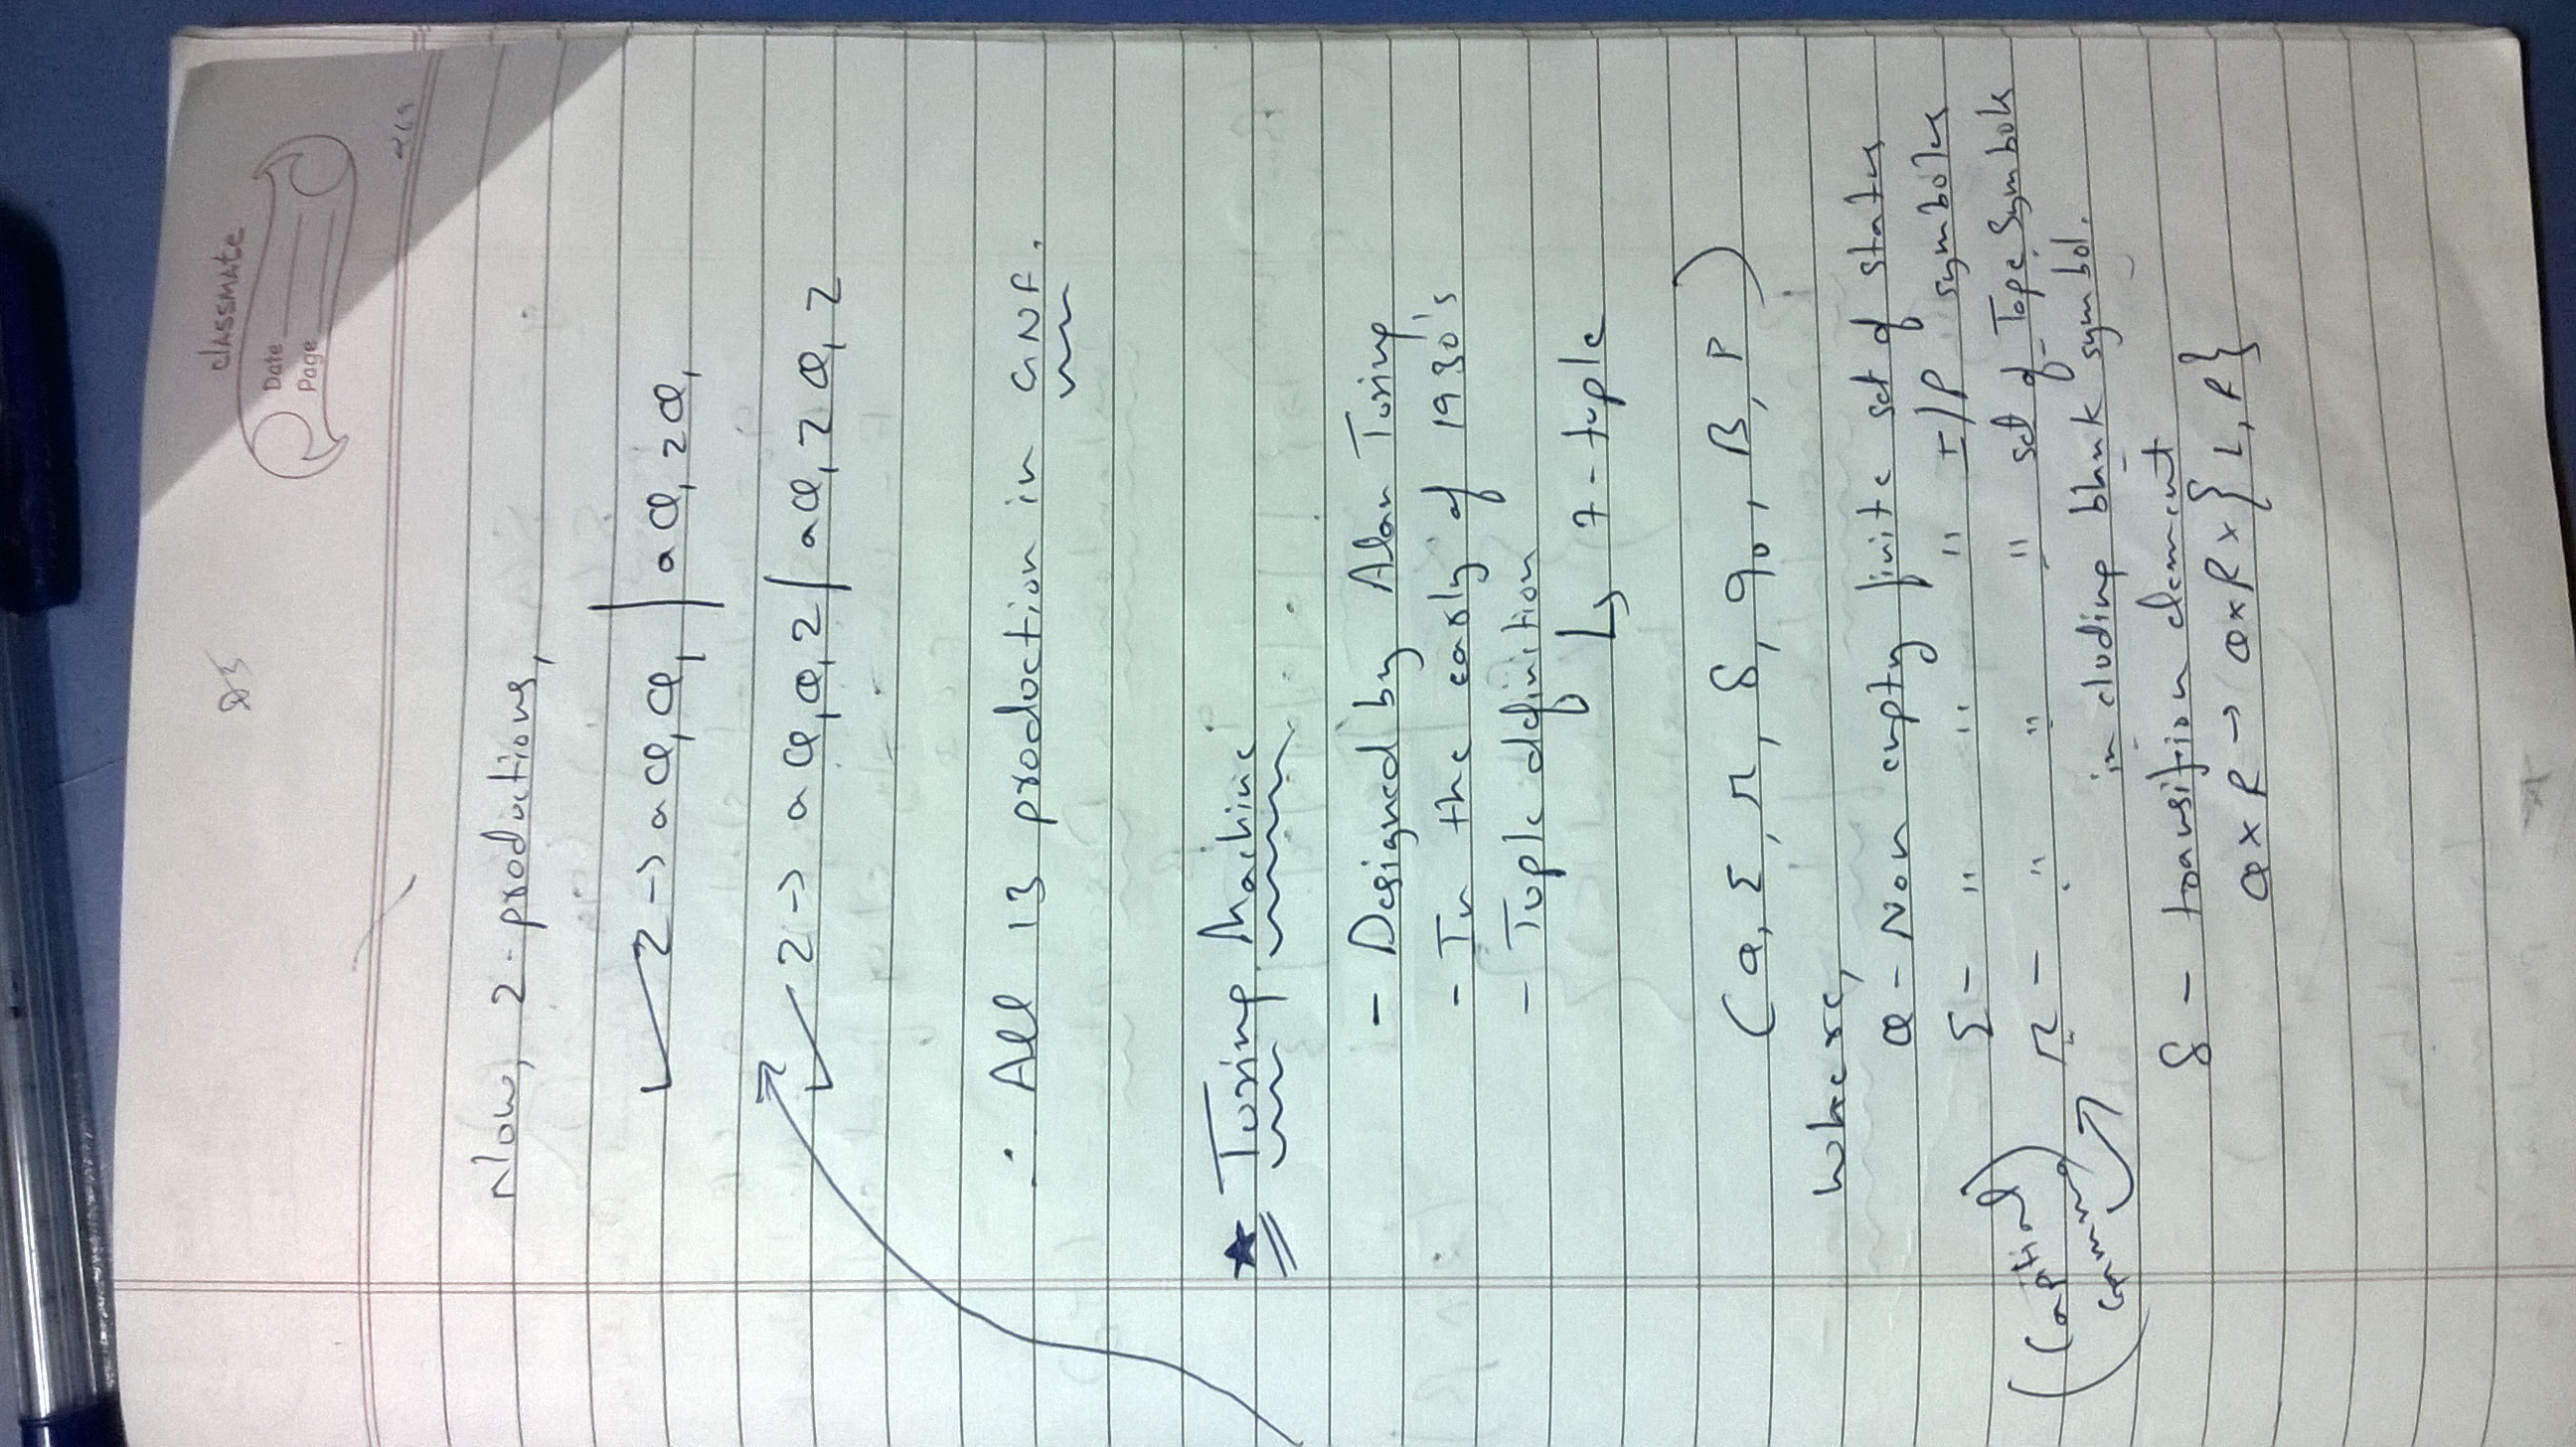 classmate
Date
Page
Now, 2-productions,
Z → aQ₁Q₁ | aQ₁ZQ₁
Z → aQ₁Q₁Z | aQ₁ZQ₁Z
∴ All 13 production in GNF.
★ Turing Machine
- Designed by Alan Turing
- In the early of 1930's
- Tuple definition
↳ 7-tuple
(Q, Σ, Γ, δ, q₀, B, F)
where,
Q - Non empty finite set of states
Σ - " " " I/P symboles
(Capitial Gamma) Γ - " " " set of Tape Symbols
including blank symbol.
δ - transition element
Q×Γ → Q×Γ×{L,R}